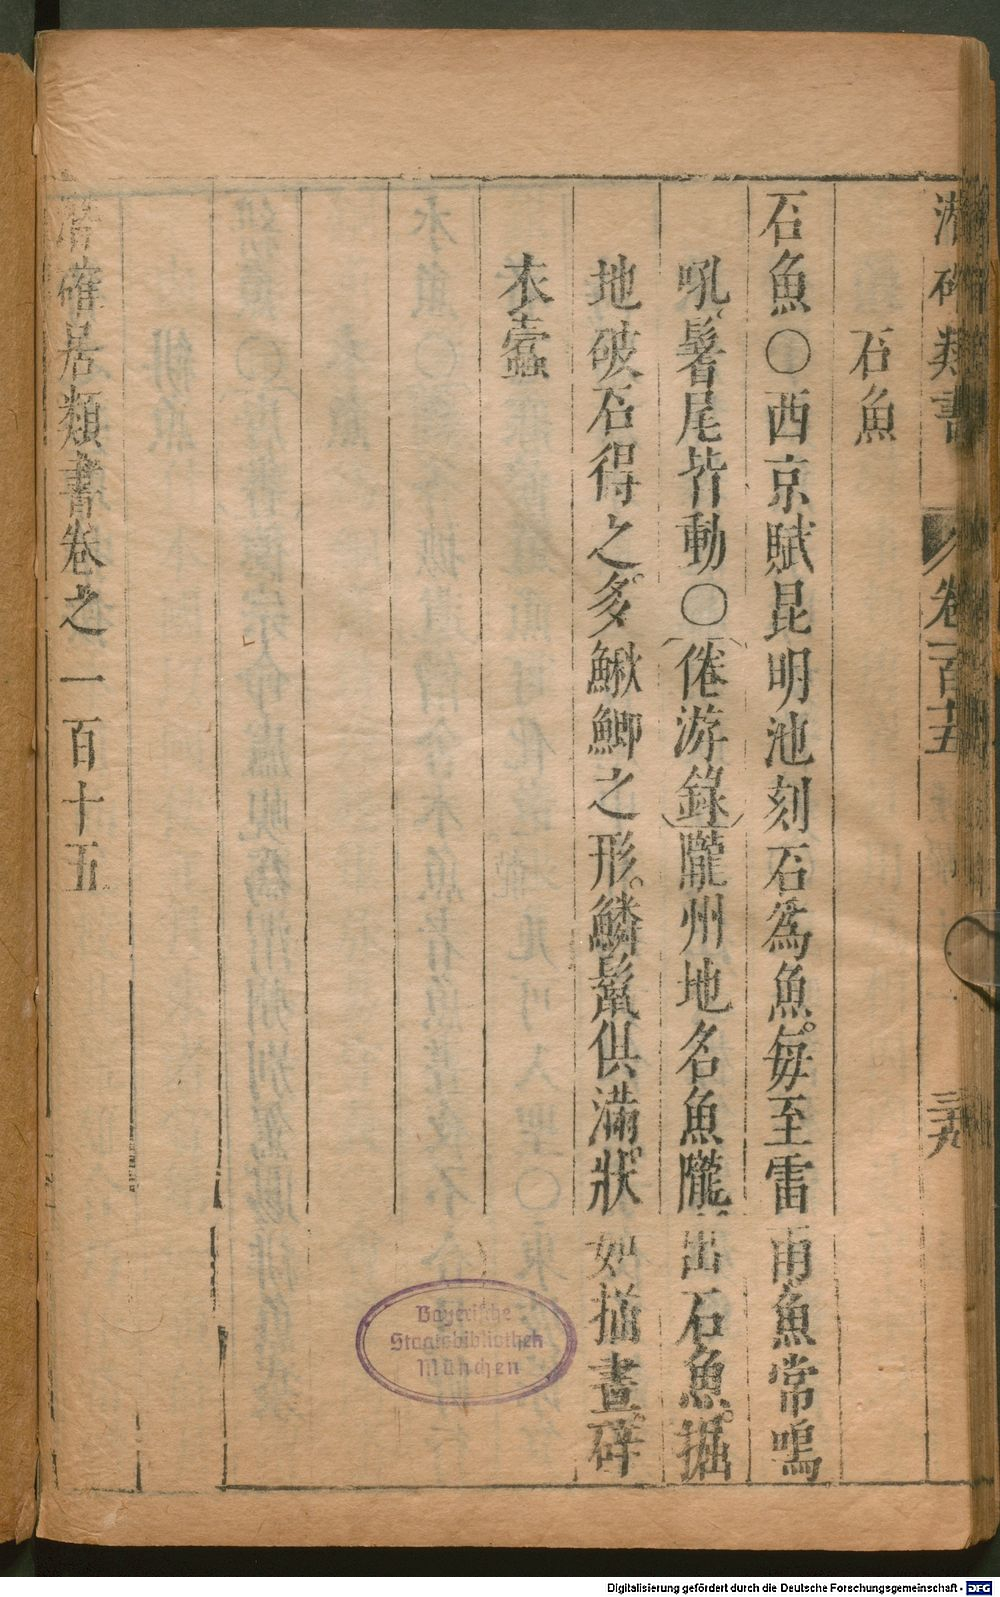 潛確類書 卷一百十五 三十九
石魚
石魚〇西京賦昆明池刻石為魚。每至雷雨魚常鳴
吼。鬐尾皆動〇(倦游錄)隴州地名魚隴出石魚。掘
地破石得之。多鰍鯽之形。鱗鬣俱滿。狀如描畫。碎
衣蠹
潛確居類書卷之一百十五
Bayerische
Staatsbibliothek
München
Digitalisierung gefördert durch die Deutsche Forschungsgemeinschaft - DFG